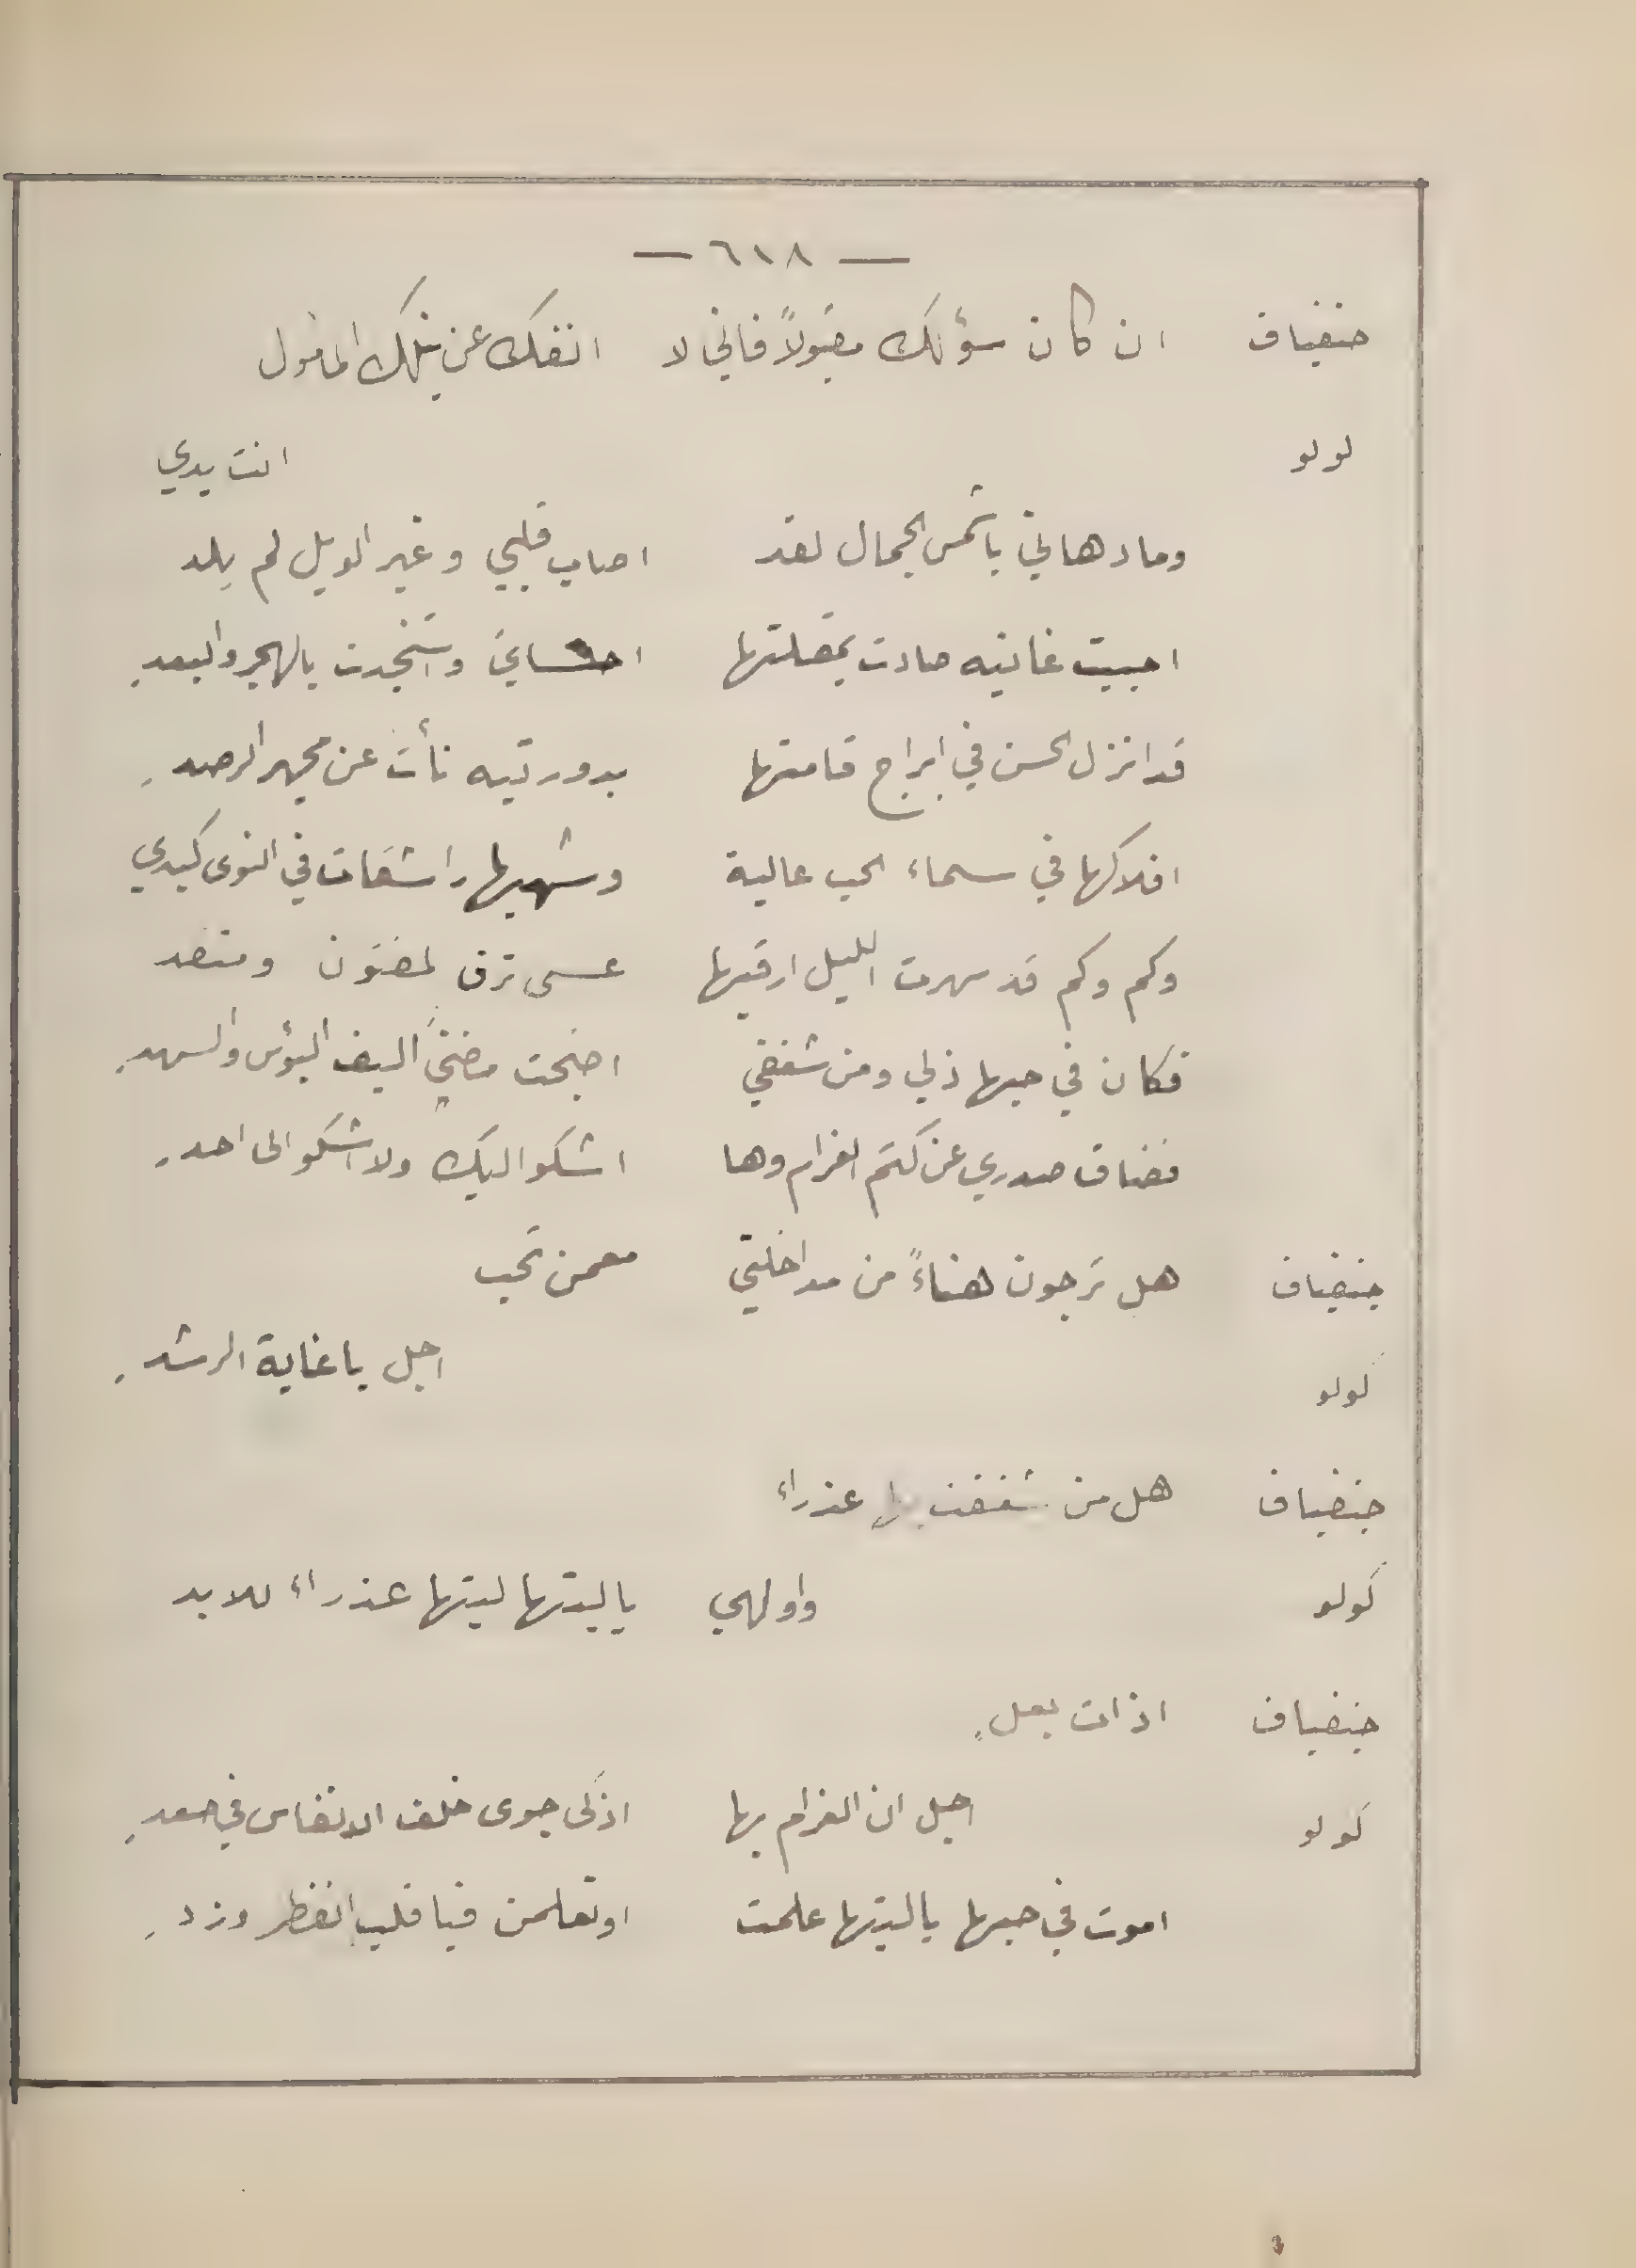 — ٦١٨ —
جنفياف ان كان سؤلك مقبولاً فاني لا انفك عن نيلك المأمول
لولو انت يدي
وما دهاني يا شمس الجمال لقد اصاب قلبي وغير الويل لم يلد
احببت غانيه صادت بمقلتها احشائي واستنجدت بالهجر والبعدِ
قد انزل الحسن في ابراج قامتها بدور تيه نأت عن مجهر الرصدِ
افلاكها في سماء الحب عالية وشهبها راشقات في النوى كبدي
وكم وكم قد سهرت الليل ارقبها عسى ترق لمفتون ومنتقد
فكان في حبها ذلي ومن شغفي اضحت مضنىً اليف البؤس والسهدِ
فضاق صدري عن كتم الغرام وها اشكو اليك ولا اشكو الى احدِ
جنفياف هل ترجون هناءً من مداخلتي معمن تحب
لولو اجل يا غاية الرشدِ
جنفياف هل من شغفت بها عذراء
لولو واولهي يا ليتها ليتها عذراء للابد
جنفياف اذات بعلٍ
لولو اجل ان الغرام بها اذكى جوى خلف الانفاس في صعدِ
اموت في حبها يا ليتها علمت اوتعلمن فيا قلب انفطر وزدِ